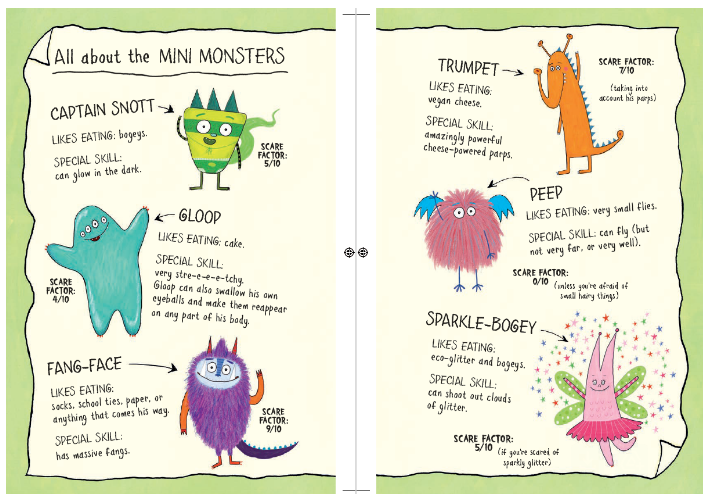 All about the MINI MONSTERS
CAPTAIN SNOTT
LIKES EATING: bogeys.
SPECIAL SKILL:
can glow in the dark.
SCARE
FACTOR:
5/10
GLOOP
LIKES EATING: cake.
SPECIAL SKILL:
very stre-e-e-e-tchy.
Gloop can also swallow his own
eyeballs and make them reappear
on any part of his body.
SCARE
FACTOR:
4/10
FANG-FACE
LIKES EATING:
socks, school ties, paper, or
anything that comes his way.
SPECIAL SKILL:
has massive fangs.
SCARE
FACTOR:
9/10
TRUMPET
LIKES EATING:
vegan cheese.
SPECIAL SKILL:
amazingly powerful
cheese-powered parps.
SCARE FACTOR:
7/10
(taking into
account his parps)
PEEP
LIKES EATING: very small flies.
SPECIAL SKILL: can fly (but
not very far, or very well).
SCARE FACTOR:
0/10 (unless you're afraid of
small hairy things)
SPARKLE-BOGEY
LIKES EATING:
eco-glitter and bogeys.
SPECIAL SKILL:
can shoot out clouds
of glitter.
SCARE FACTOR:
5/10 (if you're scared of
sparkly glitter)